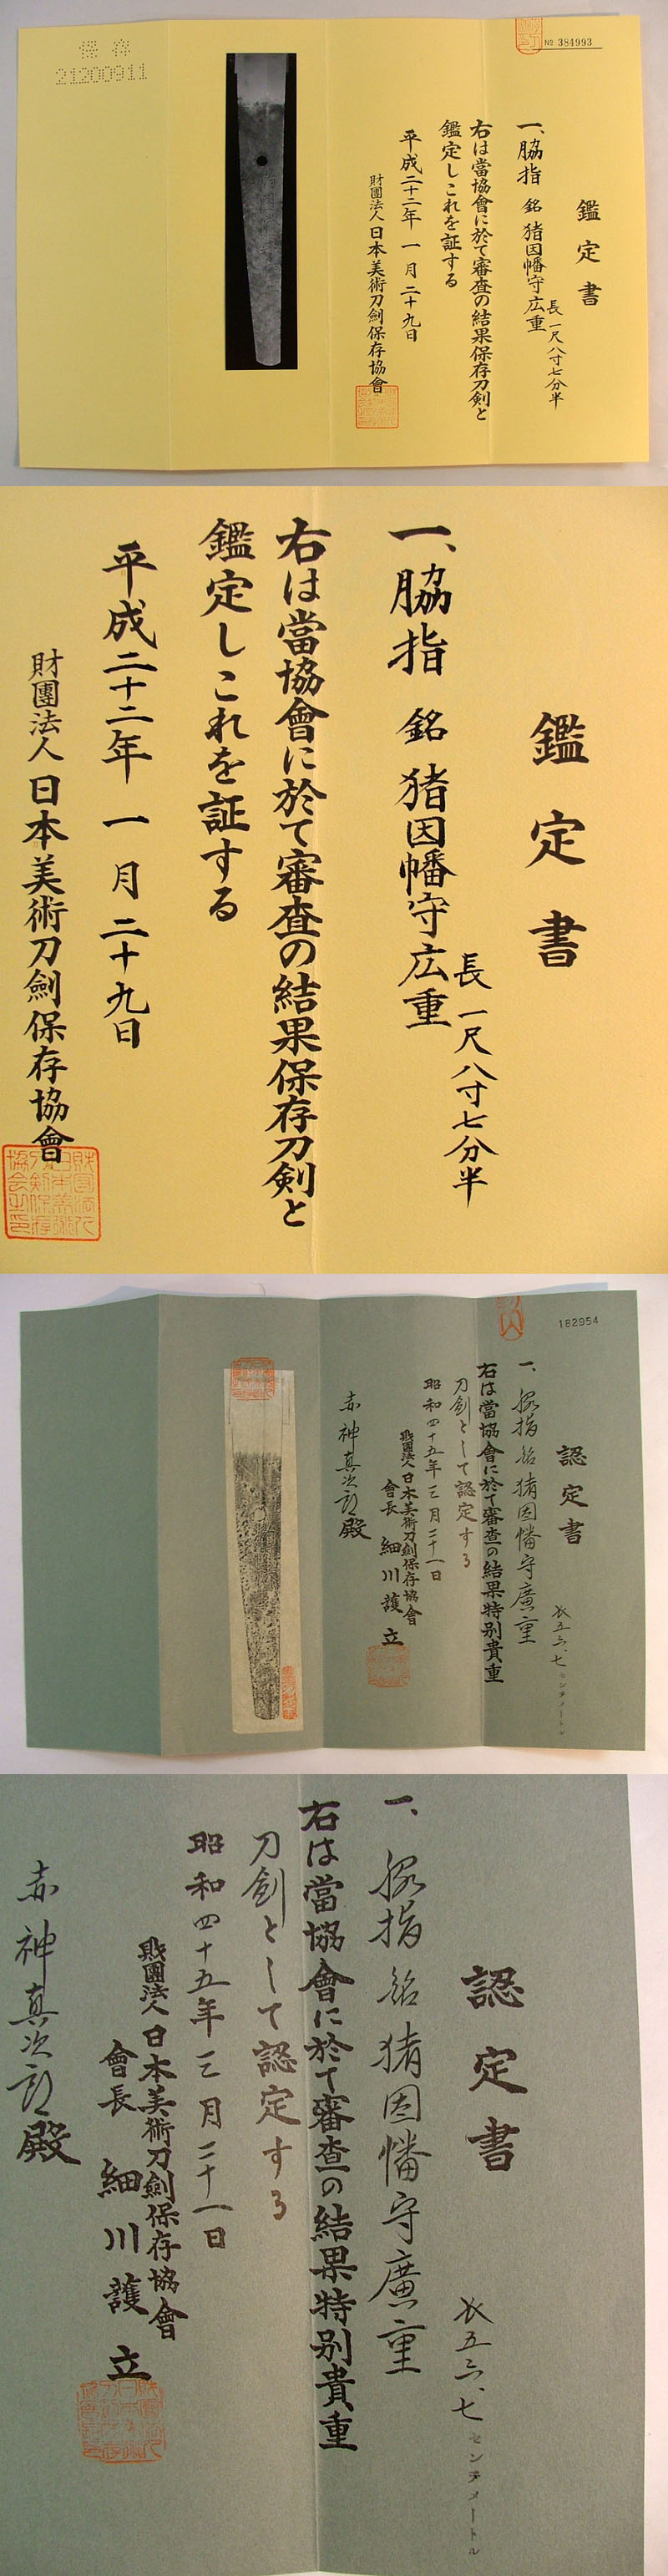 保存
21200911
№ 384993
鑑定書
長一尺八寸七分半
一、脇指 銘 猪因幡守広重
右は當協會に於て審査の結果保存刀剣と
鑑定しこれを証する
平成二十二年一月二十九日
財團法人日本美術刀劍保存協會
鑑定書
長一尺八寸七分半
一、脇指 銘 猪因幡守広重
右は當協會に於て審査の結果保存刀剣と
鑑定しこれを証する
平成二十二年一月二十九日
財團法人日本美術刀劍保存協會
182954
認定書
長五六、七センチメートル
一、脇指 銘 猪因幡守廣重
右は當協會に於て審査の結果特別貴重
刀劍として認定する
昭和四十五年三月二十一日
財團法人日本美術刀劍保存協會
會長 細川護立
赤神真次郎殿
認定書
長五六、七センチメートル
一、脇指 銘 猪因幡守廣重
右は當協會に於て審査の結果特別貴重
刀劍として認定する
昭和四十五年三月二十一日
財團法人日本美術刀劍保存協會
會長 細川護立
赤神真次郎殿